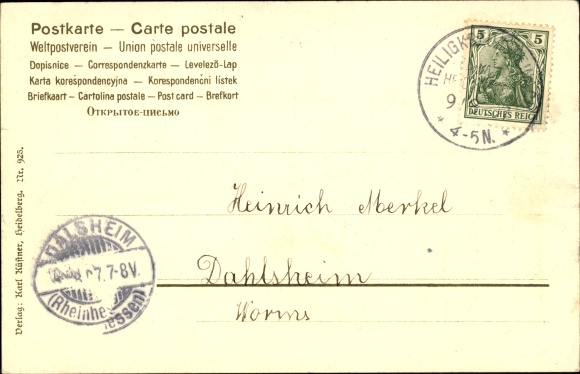 Postkarte — Carte postale
Weltpostverein — Union postale universelle
Dopisnice — Correspondenzkarte — Levelező-Lap
Karta korespondencyjna — Korespondenční listek
Briefkaart — Cartolina postale — Post card — Brefkort
Открытое-письмо
5 5
DEUTSCHES REICH
HEILIGK
9
* 4-5N. *
Heinrich Merkel
Dahlsheim
Worms
DALSHEIM
7.7-8V.
(Rheinhessen)
Verlag: Karl Küstner, Heidelberg. Nr. 925.